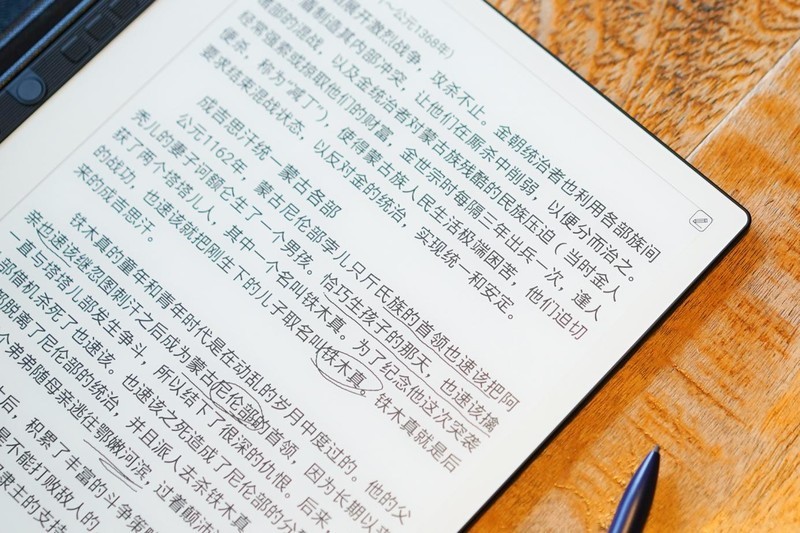 1～公元1368年）
展开激烈战争，攻杀不止。金朝统治者也利用各部族间
部的混战，以及金统治者对蒙古族残酷的民族压迫（当时金人
经常强索或掠取他们的财富，金世宗时每隔三年出兵一次，逢人
便杀，称为"减丁"），使得蒙古族人民生活极端困苦，他们迫切
要求结束混战状态，以及反对金的统治，实现统一和安定。
成吉思汗统一蒙古各部
公元1162年，蒙古尼伦部孛儿只斤氏族的首领也速该把阿
秃儿的妻子诃额仑生了一个男孩。恰巧生孩子的那天，也速该擒
获了两个塔塔儿人，其中一个名叫铁木真。为了纪念他这次突袭
的战功，也速该就把刚生下的儿子取名叫铁木真。铁木真就是后
来的成吉思汗。
铁木真的童年和青年时代是在动乱的岁月中度过的。他的父
亲也速该继忽图剌汗之后成为蒙古尼伦部的首领，因为长期以来
直与塔塔儿部发生争斗，所以结下了很深的仇恨。后来，
部借机杀死了也速该。也速该之死造成了尼伦部的分
都脱离了尼伦部的统治，并且派人去杀铁木真
个弟弟随母亲逃往鄂嫩河滨，过着颠沛
后，积累了丰富的斗争策
是不能打败敌人的
隶主的支持